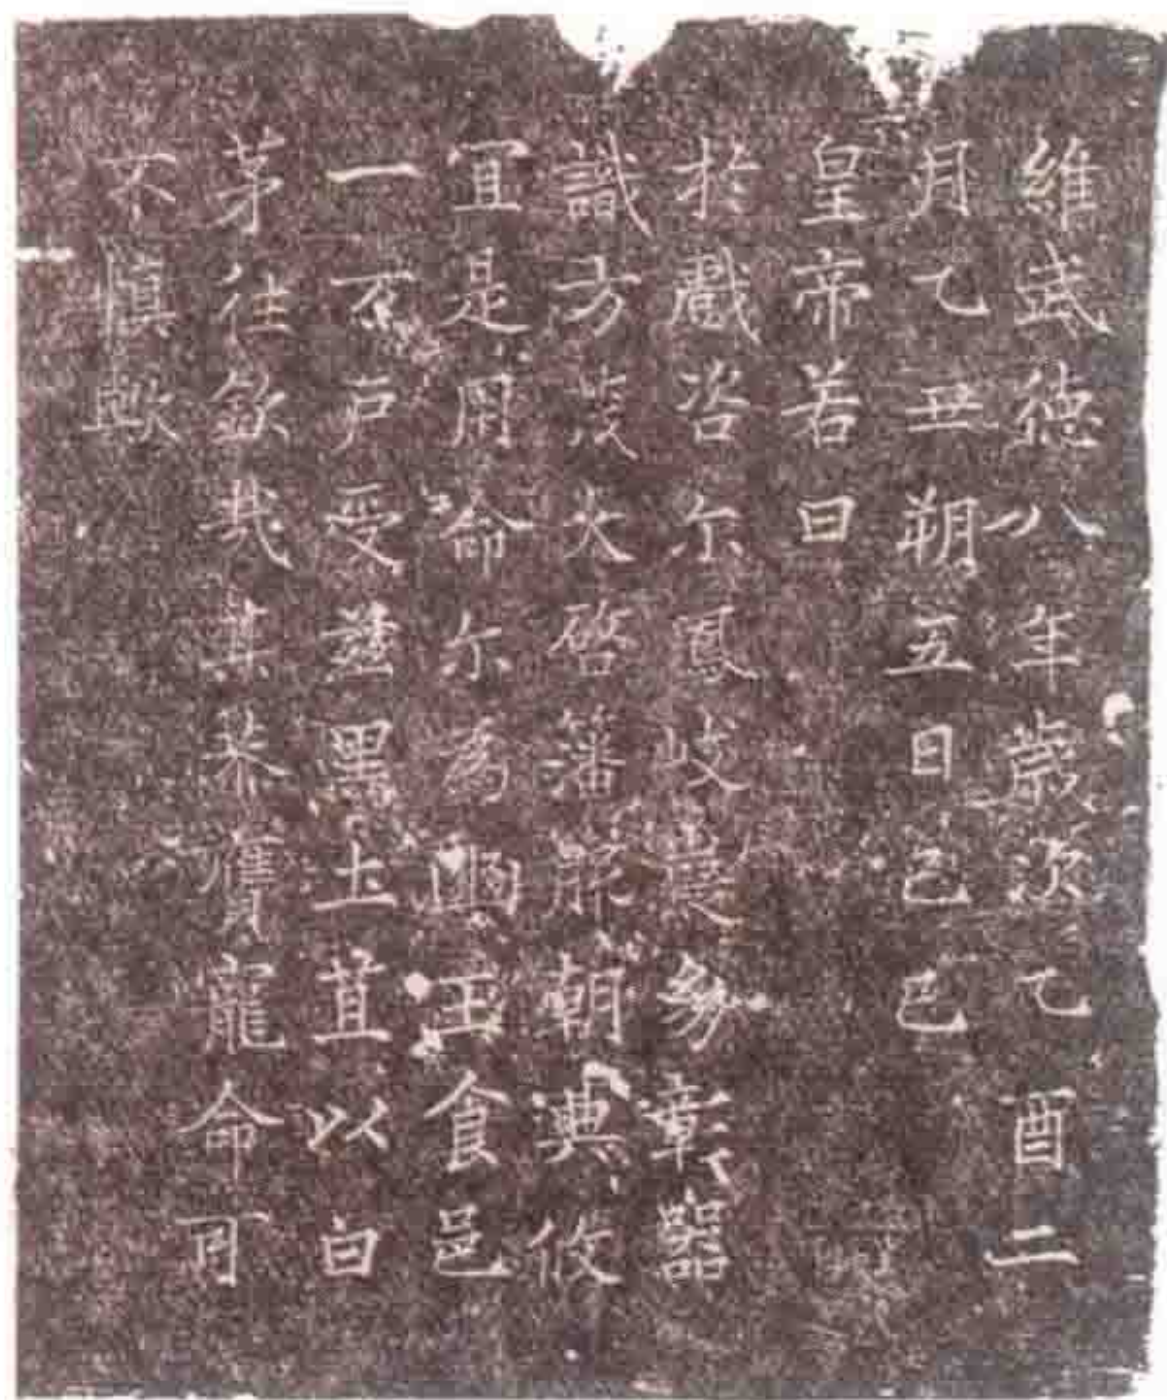 維武德八年歲次乙酉二
月乙丑朔五日己巳
皇帝若曰
於戲咨尔鳳岐嶷彰器
識方茂大啓藩朝典攸
宜是用命尔為豳王食邑
一万戶受茲黑土苴以白
茅往欽哉其恭膺寵命可
不慎歟